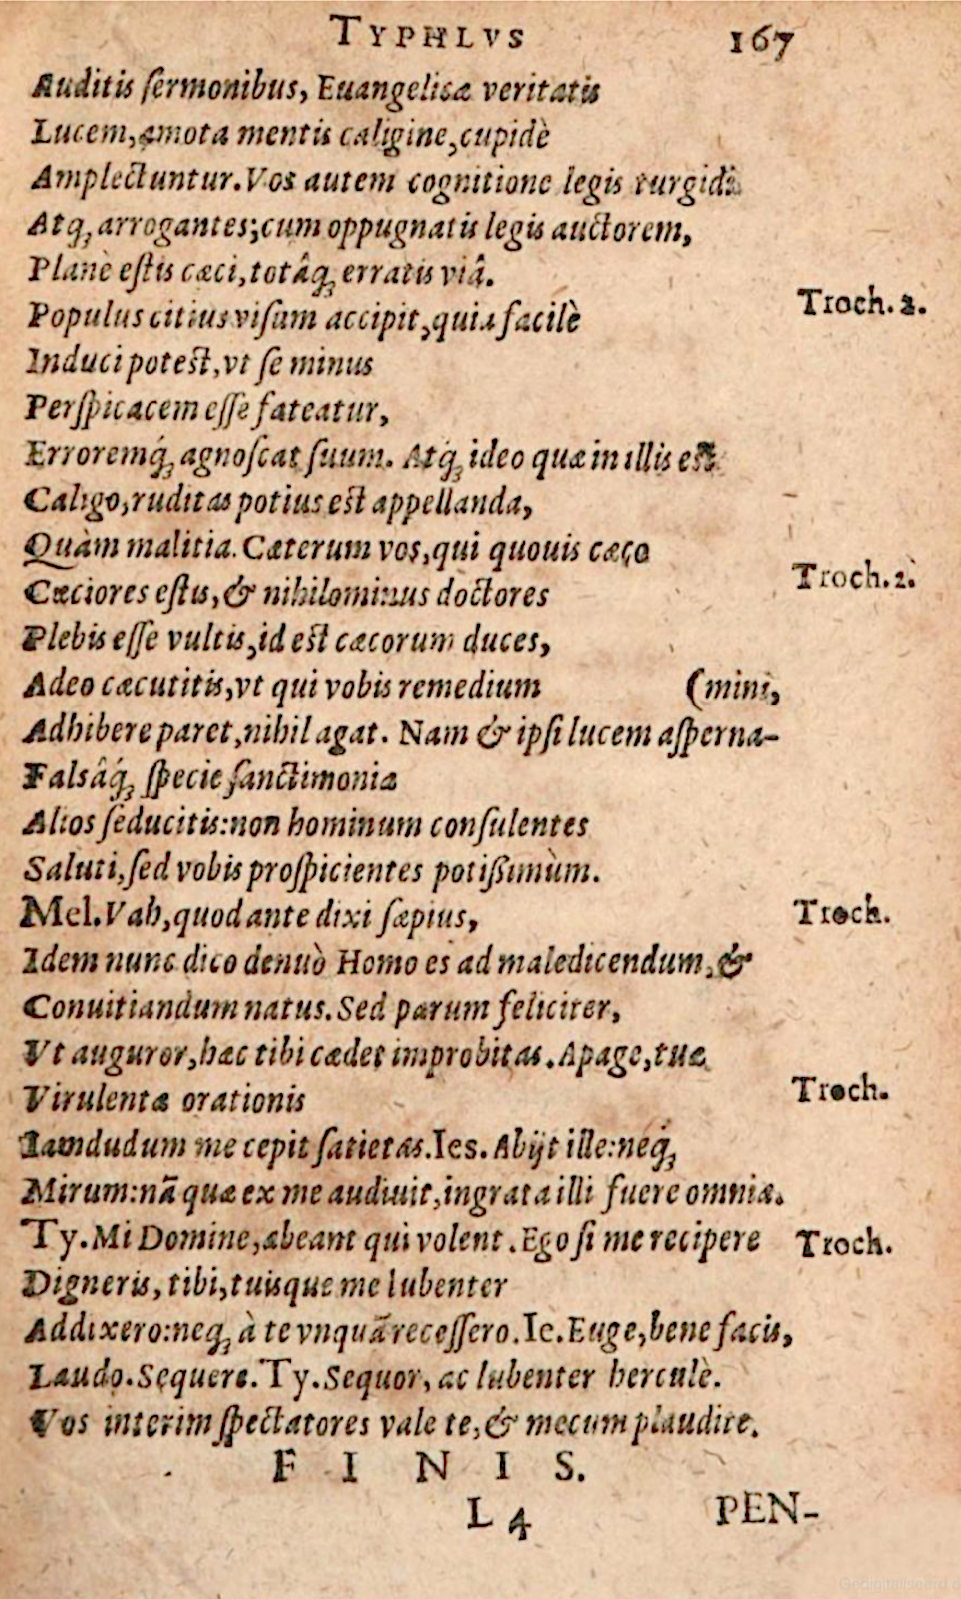 TYPHLVS 167
Auditis ſermonibus, Euangelicæ veritatis
Lucem, amota mentis caligine, cupidè
Amplectuntur. Vos autem cognitione legis turgidi
Atq; arrogantes; cum oppugnatis legis auctorem,
Planè eſtis cæci, totâq; erratis viâ.
Populus citius viſum accipit, quia facilè Troch. 2.
Induci poteſt, vt ſe minus
Perſpicacem eſſe fateatur,
Erroremq́; agnoſcat ſuum. Atq́; ideo quæ in illis eſt
Caligo, ruditas potius eſt appellanda,
Quàm malitia. Cæterum vos, qui quouis cæco
Cæciores eſtis, & nihilominus doctores Troch. 2.
Plebis eſſe vultis, id eſt cæcorum duces,
Adeo cæcutitis, vt qui vobis remedium (mini,
Adhibere paret, nihil agat. Nam & ipſi lucem aſperna-
Falsâq́; ſpecie ſanctimoniæ
Alios ſeducitis: non hominum conſulentes
Saluti, ſed vobis proſpicientes potißimùm.
Mel. Vah, quod ante dixi ſæpius, Troch.
Idem nunc dico denuò Homo es ad maledicendum, &
Conuitiandum natus. Sed parum feliciter,
Vt auguror, hæc tibi cædet improbitas. Apage, tuæ
Virulentæ orationis Troch.
Iamdudum me cepit ſatietas. Ies. Abijt ille: neq́;
Mirum: nā quæ ex me audiuit, ingrata illi fuere omnia.
Ty. Mi Domine, abeant qui volent. Ego ſi me recipere Troch.
Digneris, tibi, tuisque me lubenter
Addixero: neq; à te vnquā receſſero. Ie. Euge, bene facis,
Laudo. Sequere. Ty. Sequor, ac lubenter herculè.
Vos interim ſpectatores vale te, & mecum plaudite.
F I N I S.
L 4 PEN-